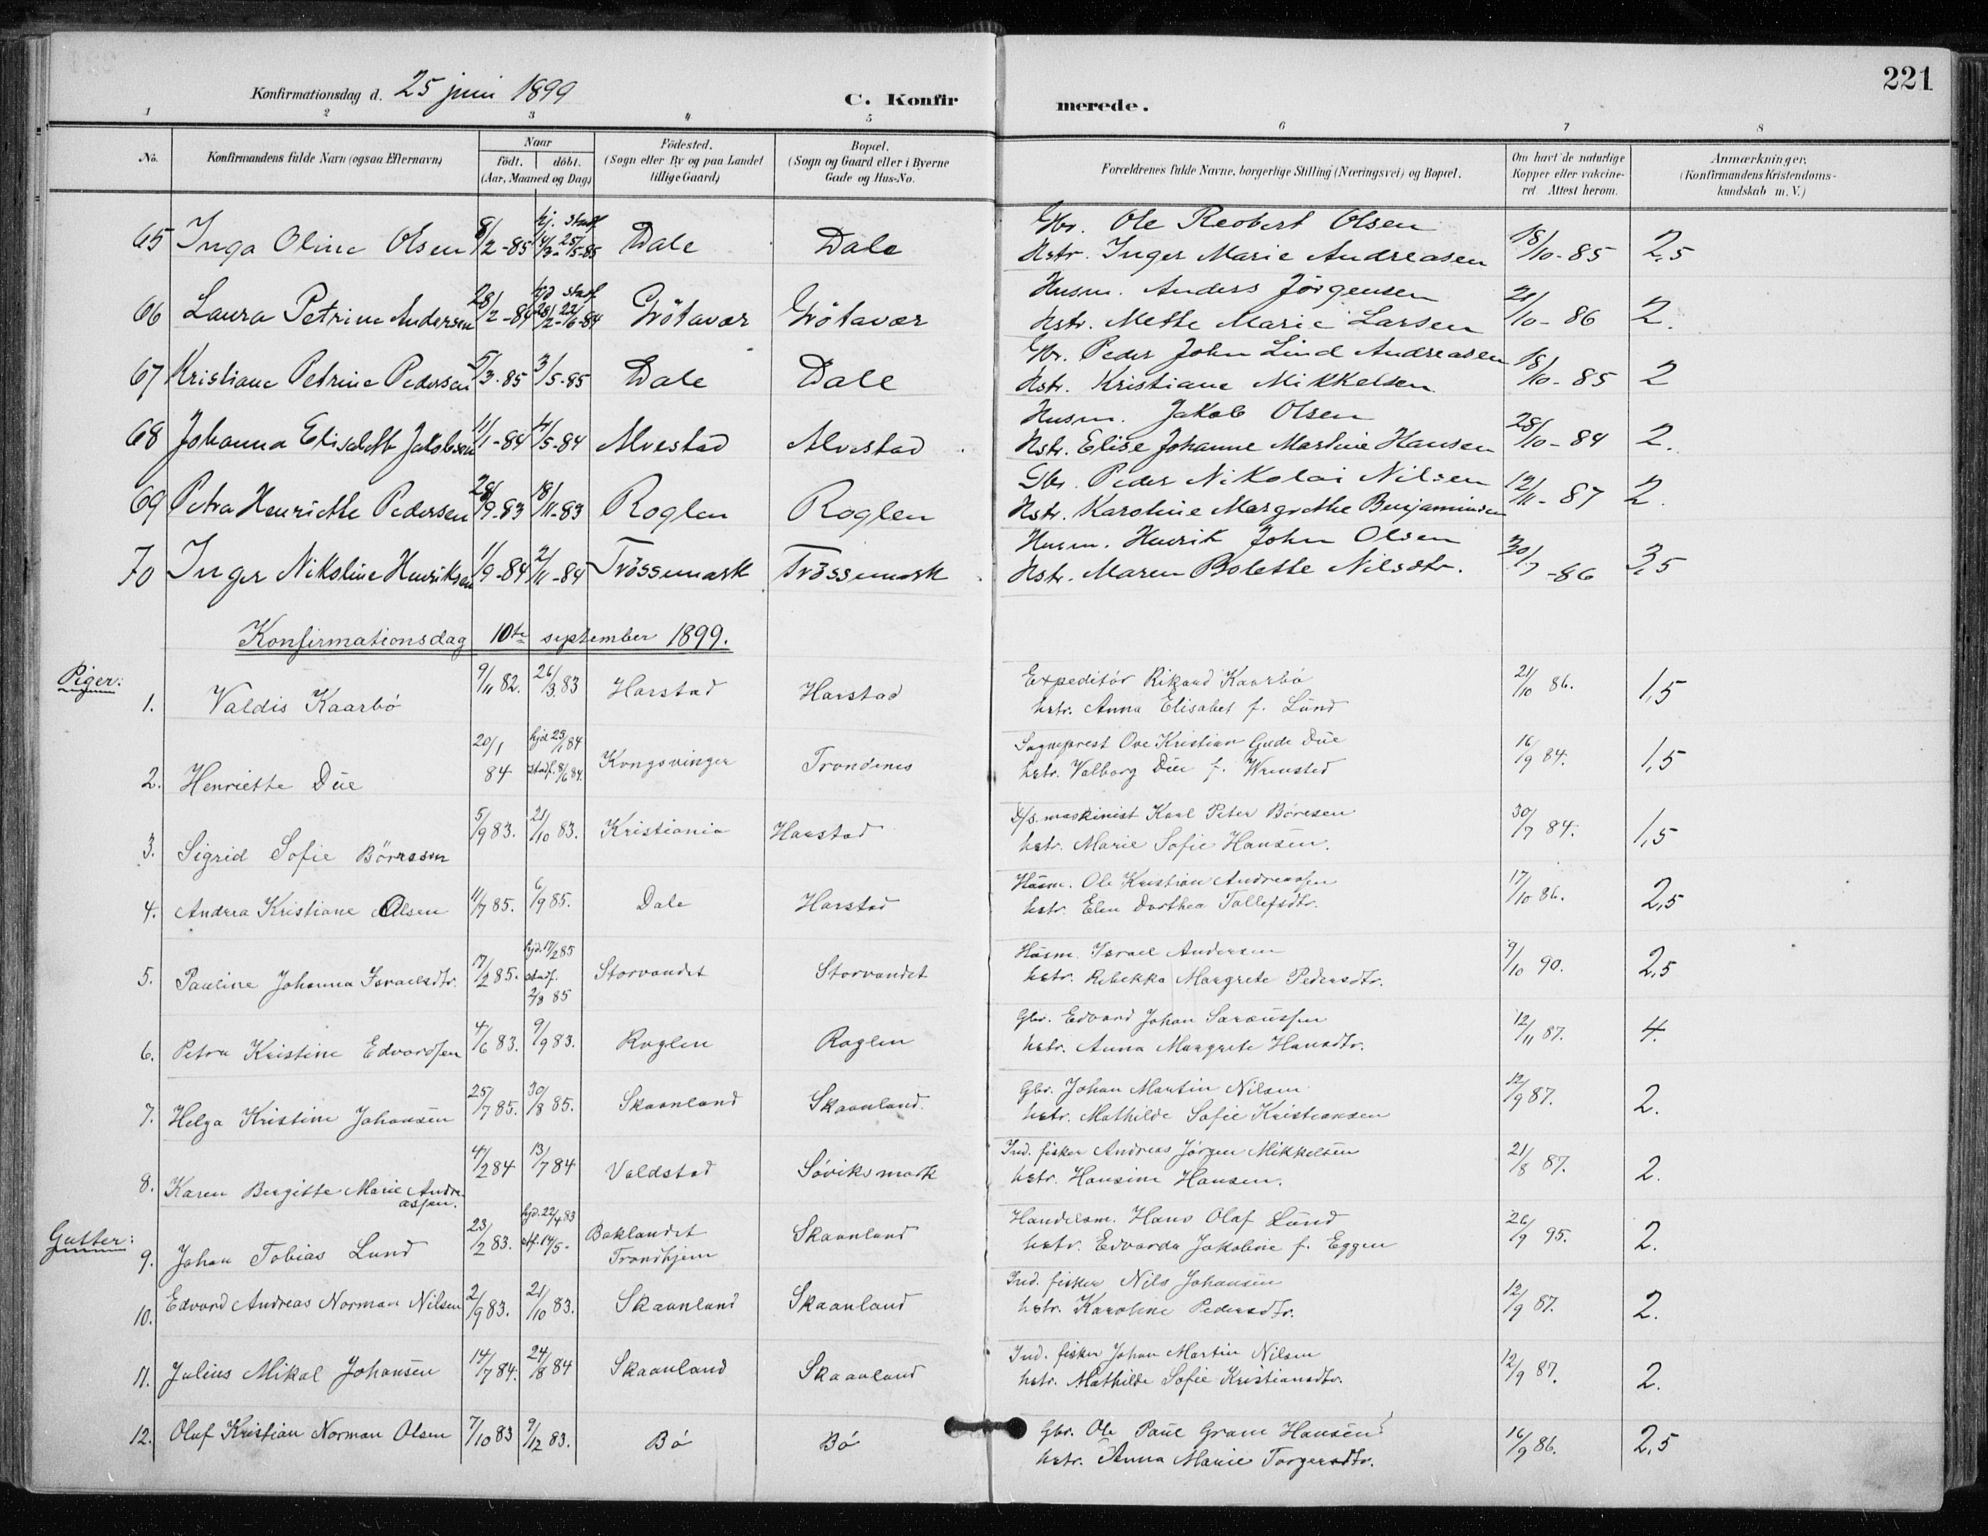 221
Konfirmationsdag d. 25 juni 1899
C. Konfirmerede.
1 2 3 4 5 6 7 8
No. Konfirmandens fulde Navn (ogsaa Efternavn) Naar født. døbt. (Aar, Maaned og Dag) Fødested. (Sogn eller By og paa Landet tillige Gaard) Bopæl. (Sogn og Gaard eller i Byerne Gade og Hus-No. Forældrenes fulde Navne, borgerlige Stilling (Næringsvei) og Bopæl. Om havt de naturlige Kopper eller vakcineret. Attest herom. Anmærkninger. (Konfirmandens Kristendomskundskab m. V.)
65 Inga Oline Olsen 8/2-85 hj. 14/3- stadf. 25/5-85 Dale Dale Gbr. Ole Reobert Olsen 18/10-85 2,5
Hstr. Inger Marie Andreasen
66 Laura Petrine Andersen 28/2-84 hjd 28/2- stadf. 22/6-84 Grötavær Grötavær Husm. Anders Jörgensen 21/10-86 2.
Hstr. Mette Marie Larsen
67 Kristiane Petrine Pedersen 5/3-85 3/5-85 Dale Dale Gbr. Peder John Lind Andreasen 18/10-85 2
Hstr. Kristiane Mikkelsen
68 Johanna Elisabeth Jakobsen 11/1-84 4/5-84 Alvestad Alvestad Husm. Jakob Olsen 28/10-84 2.
Hstr. Elise Johanne Martine Hansen
69 Petra Henriette Pedersen 28/9-83 18/11-83 Roglen Roglen Gbr. Peder Nikolai Nilsen 12/11-87 2.
Hstr. Karoline Margrethe Benjaminsen
70 Inger Nikoline Henriksen 11/9-84 2/11-84 Trössemark Trössemark Husm. Henrik John Olsen 30/7-86 3,5
Hstr. Maren Bolette Nilsdtr.
Konfirmationsdag 10de september 1899.
Piger:
1. Valdis Kaarbö 9/11 82. 26/3 83 Harstad Harstad Expeditör Rikard Kaarbö 21/10 86. 1,5
hstr. Anna Elisabet f. Lund
2. Henriette Due 20/1 84 hjd 23/1 84 stadf. 8/6 84. Kongsvinger Trondenes Sogneprest Ove Kristian Gude Due 16/9 84. 1,5
hstr. Valborg Due f. Wrensted
3. Sigrid Sofie Börresen 5/9 83. 21/10 83. Kristiania Harstad D/s. maskinist Karl Peter Böresen 30/7 84. 1,5
hstr. Marie Sofie Hansen.
4. Andrea Kristiane Olsen 11/7 85. 6/9 85. Dale Harstad Husm. Ole Kristian Andreassen 17/10 86. 2,5
hstr. Elen Dorthea Tollefsdtr.
5. Pauline Johanna Israelsdtr. 7/2 85. hjd. 17/2 85 stadf. 2/8 85 Storvandet Storvandet Husm. Israel Andersen 9/10 90. 2,5
hstr. Rebekka Margrete Pedersdtr.
6. Petra Kristine Edvardsen 4/6 83. 9/9 83. Roglen Roglen Gbr. Edvard Johan Saraussen 12/11 87. 4.
hstr. Anna Margrete Hansdtr.
7. Helga Kristine Johansen 25/7 85. 30/8 85. Skaanland Skaanland. Gbr. Johan Martin Nilsen 12/9 87. 2.
hstr. Mathilde Sofie Kristiansen
8. Karen Bergitte Marie Andreassen. 4/2 84 13/7 84 Voldstad Söviksmark Ind. fisker Andreas Jörgen Mikkelsen 21/8 87. 2.
hstr. Hansine Hansen.
Gutter:
9. Johan Tobias Lund 23/2 83. hjd. 22/4 83 stf. 14/5- Baklandet Trondhjem Skaanland Handelsm. Hans Olaf Lund 26/9 95. 2.
hstr. Edvarda Jakobine f. Eggen
10. Edvard Andreas Norman Nilsen 2/9 83. 21/10 83. Skaanland Skaanland Ind. fisker Nils Johansen 12/9 87. 2.
hstr. Karoline Pedersdtr.
11. Julius Mikal Johansen 14/7 84. 24/8 84 Skaanland Skaanland Ind. fisker Johan Martin Nilsen 12/9 87. 2.
hstr. Mathilde Sofie Kristiansdtr.
12. Oluf Kristian Norman Olsen 7/10 83 9/12 83. Bö Bö Gbr. Ole Paul Gram Hansen 16/9 86. 2,5
hstr. Anna Marie Torgersdtr.